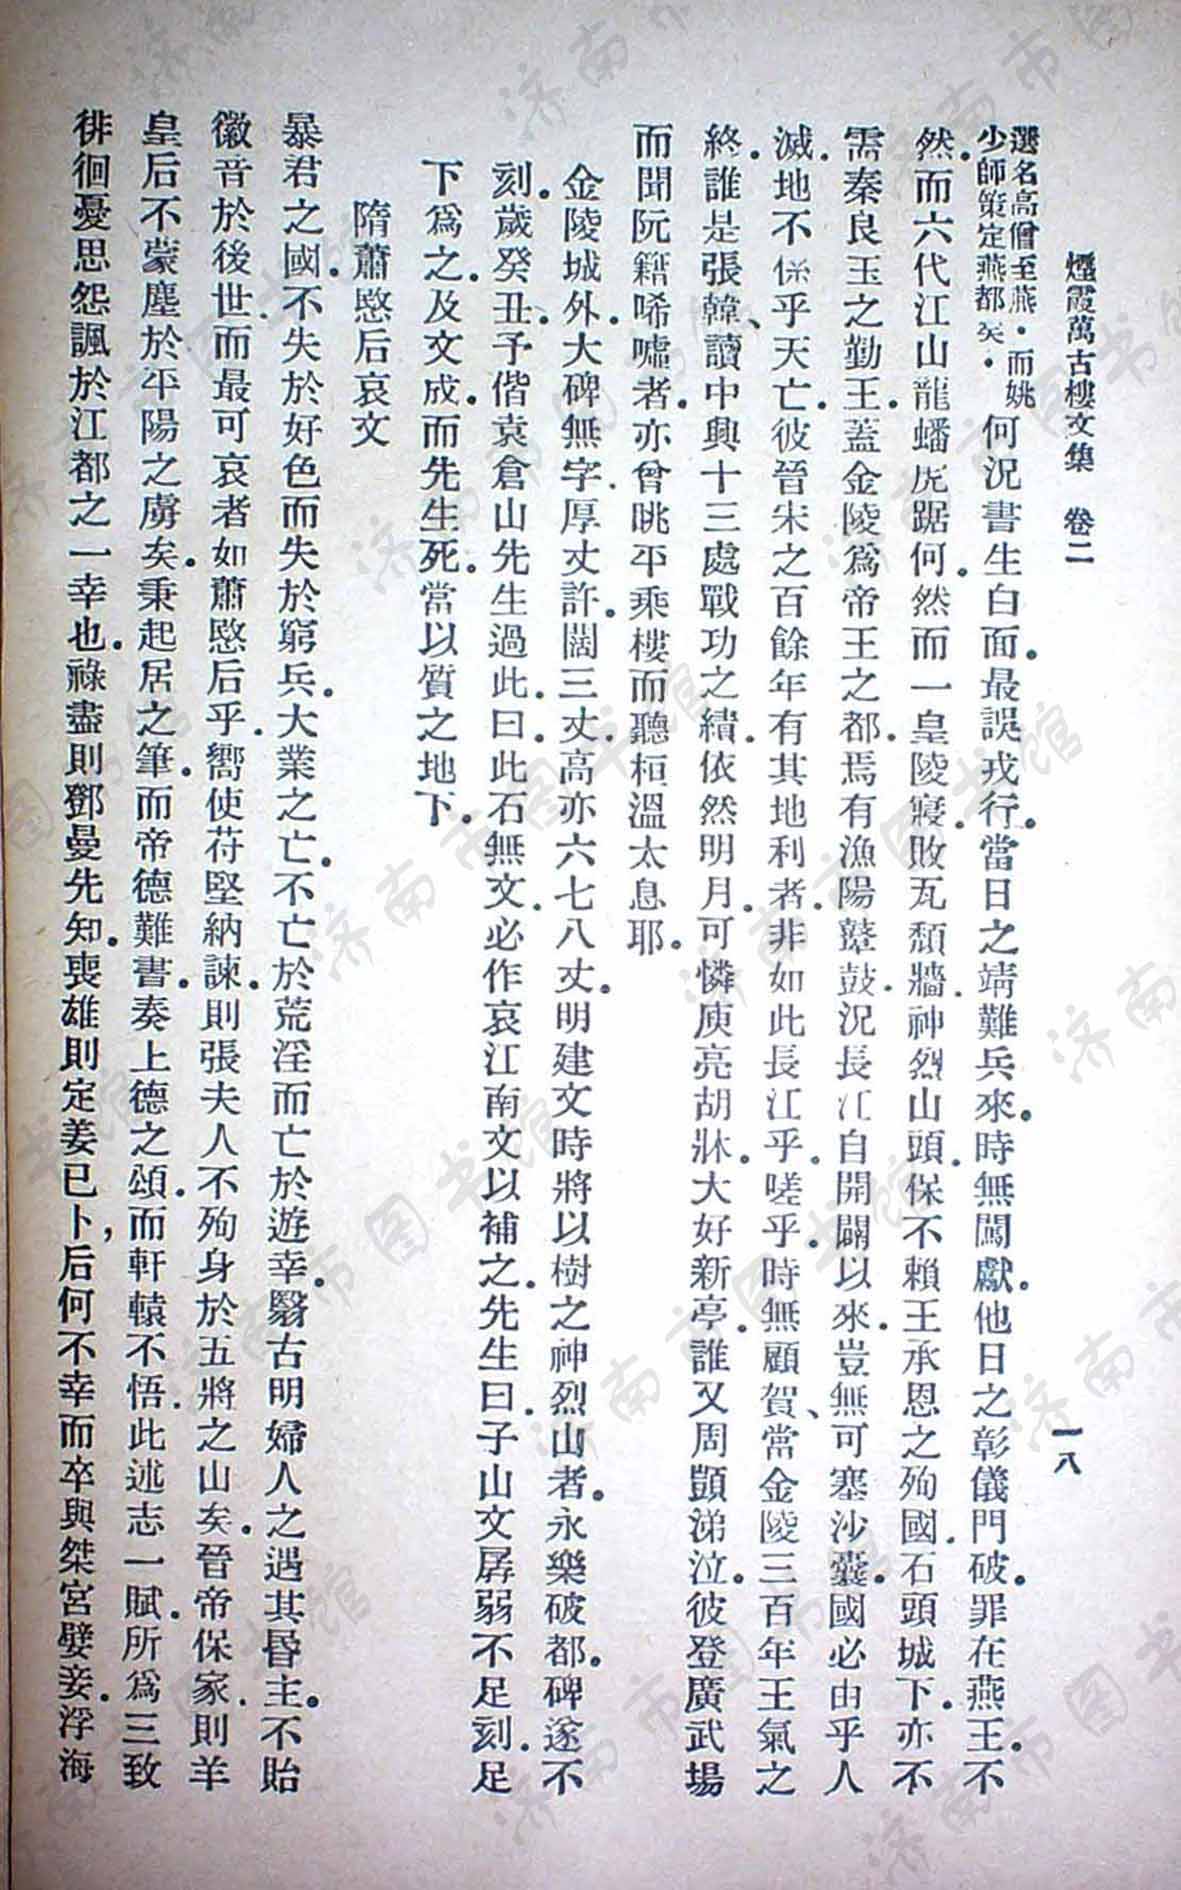 煙霞萬古樓文集　卷二　一八
選名高僧至燕．而姚
少師策定燕都矣．
何況書生白面。最誤戎行。當日之靖難兵來。時無闖獻。他日之彰儀門破。罪在燕王。不
然。而六代江山龍蟠虎踞何。然而一皇陵寢。敗瓦頹牆。神烈山頭。保不賴王承恩之殉國。石頭城下。亦不
需秦良玉之勤王。蓋金陵爲帝王之都。焉有漁陽鼙鼓。況長江自開闢以來。豈無可塞沙囊。國必由乎人
滅。地不係乎天亡。彼晉宋之百餘年有其地利者。非如此長江乎。嗟乎。時無顧賀、當金陵三百年王氣之
終。誰是張韓、讀中興十三處戰功之績。依然明月。可憐庾亮胡牀。大好新亭。誰又周顗涕泣。彼登廣武場
而聞阮籍唏噓者。亦曾眺平乘樓而聽桓溫太息耶。
金陵城外。大碑無字。厚丈許。闊三丈。高亦六七八丈。明建文時將以樹之神烈山者。永樂破都。碑遂不
刻。歲癸丑。予偕袁倉山先生過此。曰。此石無文。必作哀江南文以補之。先生曰。子山文孱弱不足刻。足
下爲之。及文成。而先生死。當以質之地下。
隋蕭愍后哀文
暴君之國。不失於好色而失於窮兵。大業之亡。不亡於荒淫而亡於遊幸。翳古明婦人之遇其昏主。不貽
徽音於後世。而最可哀者如蕭愍后乎。嚮使苻堅納諫。則張夫人不殉身於五將之山矣。晉帝保家。則羊
皇后不蒙塵於平陽之虜矣。秉起居之筆。而帝德難書。奏上德之頌。而軒轅不悟。此述志一賦。所爲三致
徘徊憂思怨諷於江都之一幸也。祿盡則鄧曼先知。喪雄則定姜已卜，后何不幸而卒與桀宮嬖妾。浮海
济南市图书馆